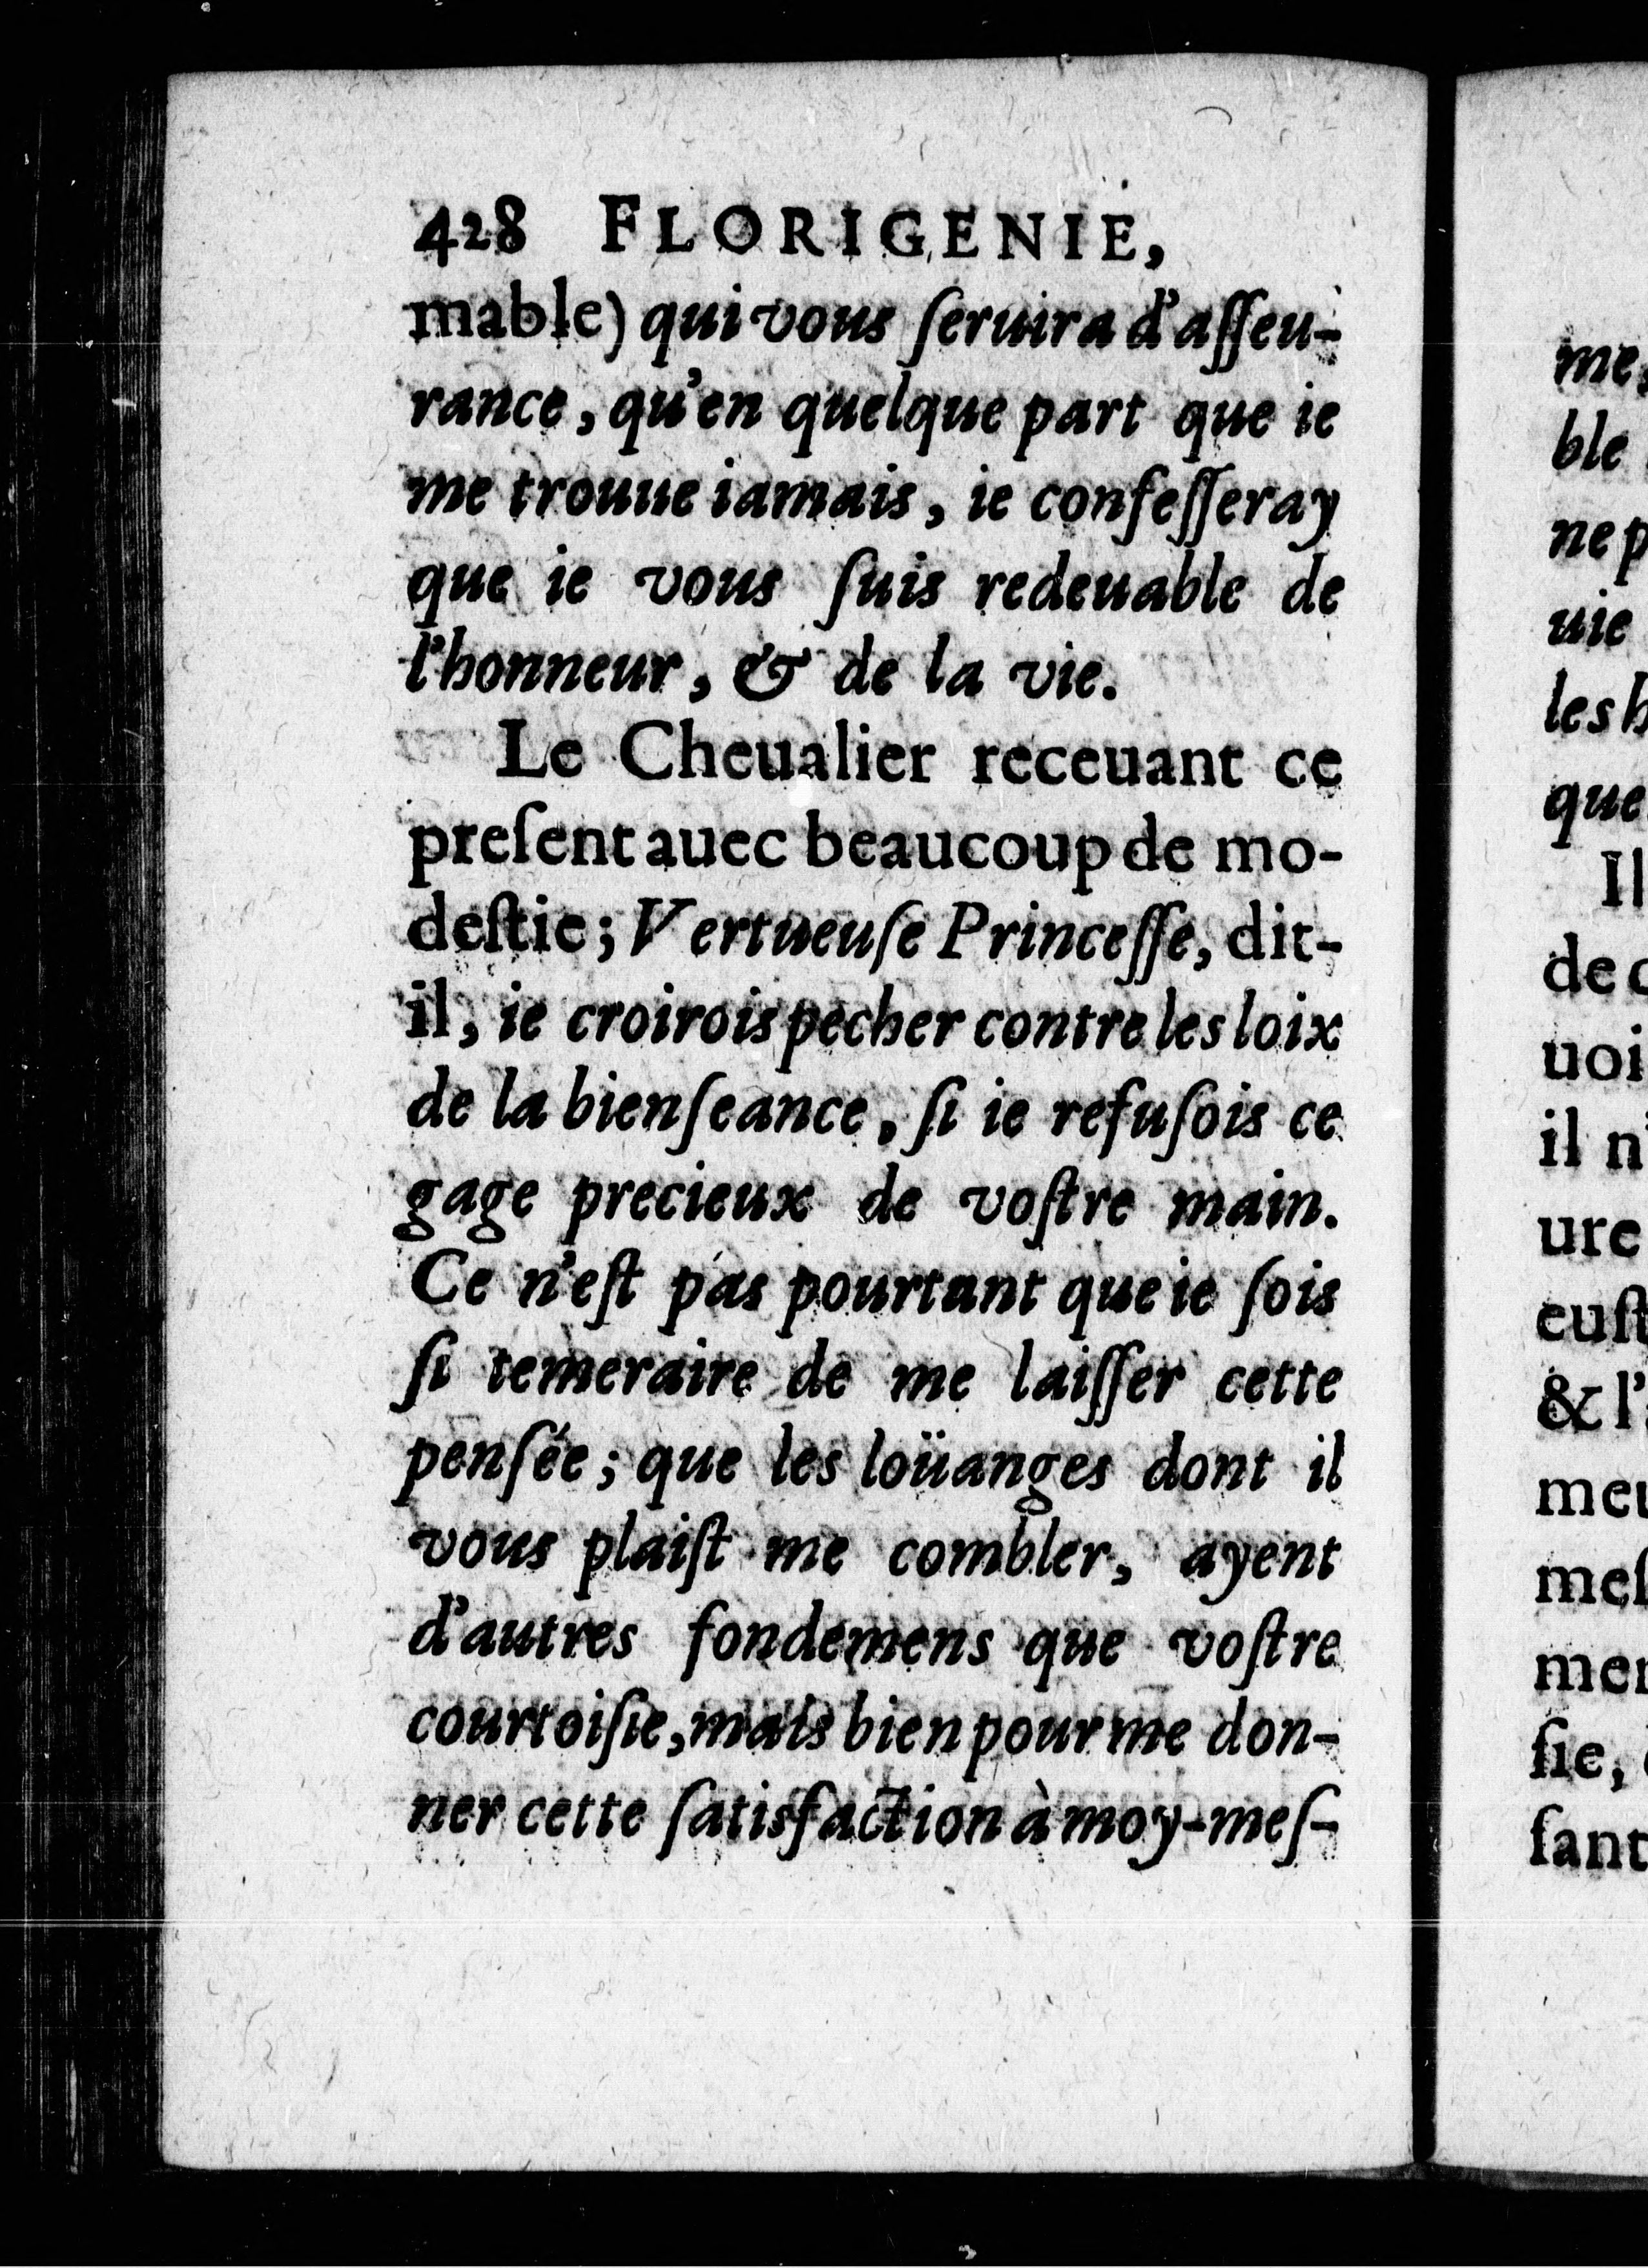 428 FLORIGENIE,
mable) qui vous ſeruira d'aſſeu-
rance, qu'en quelque part que ie
me trouue iamais, ie confeſſeray
que ie vous ſuis redeuable de
l'honneur, & de la vie.
Le Cheualier receuant ce
preſent auec beaucoup de mo-
deſtie; Vertueuſe Princeſſe, dit-
il, ie croirois pecher contre les loix
de la bienſeance, ſi ie refuſois ce
gage precieux de voſtre main.
Ce n'eſt pas pourtant que ie ſois
ſi temeraire de me laiſſer cette
penſée; que les loüanges dont il
vous plaiſt me combler, ayent
d'autres fondemens que voſtre
courtoiſie, mais bien pour me don-
ner cette ſatisfaction à moy-meſ-
me,
ble
ne p
uie
les h
que
Il
de
uoi
il n'
ure
euſt
& l'
me
meſ
mer
ſie,
ſant